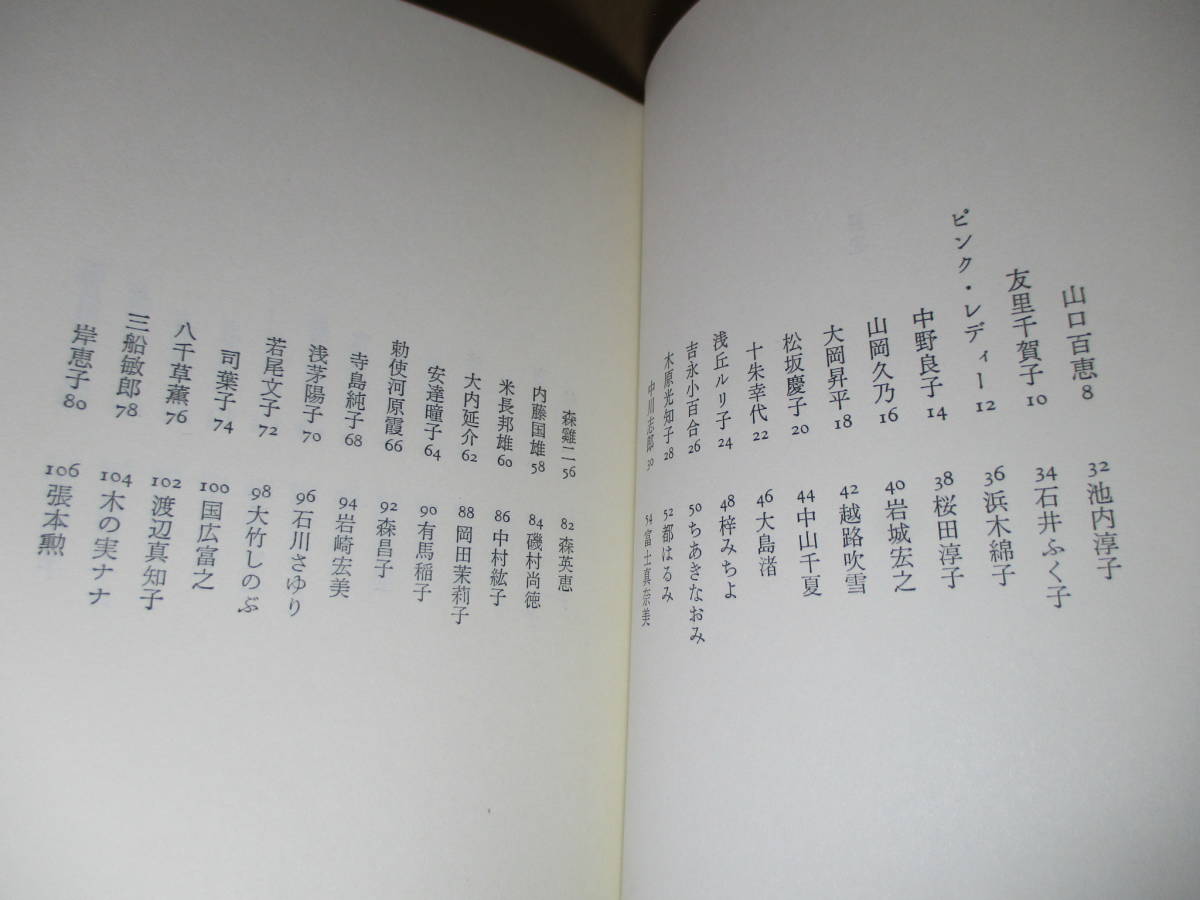 山口百恵 8
友里千賀子 10
ピンク・レディー 12
中野良子 14
山岡久乃 16
大岡昇平 18
松坂慶子 20
十朱幸代 22
浅丘ルリ子 24
吉永小百合 26
木原光知子 28
中川志郎 30
32 池内淳子
34 石井ふく子
36 浜木綿子
38 桜田淳子
40 岩城宏之
42 越路吹雪
44 中山千夏
46 大島渚
48 梓みちよ
50 ちあきなおみ
52 都はるみ
54 富士真奈美
森雞二 56
内藤国雄 58
米長邦雄 60
大内延介 62
安達瞳子 64
勅使河原霞 66
寺島純子 68
浅茅陽子 70
若尾文子 72
司葉子 74
八千草薫 76
三船敏郎 78
岸恵子 80
82 森英恵
84 磯村尚徳
86 中村紘子
88 岡田茉莉子
90 有馬稲子
92 森昌子
94 岩崎宏美
96 石川さゆり
98 大竹しのぶ
100 国広富之
102 渡辺真知子
104 木の実ナナ
106 張本勲